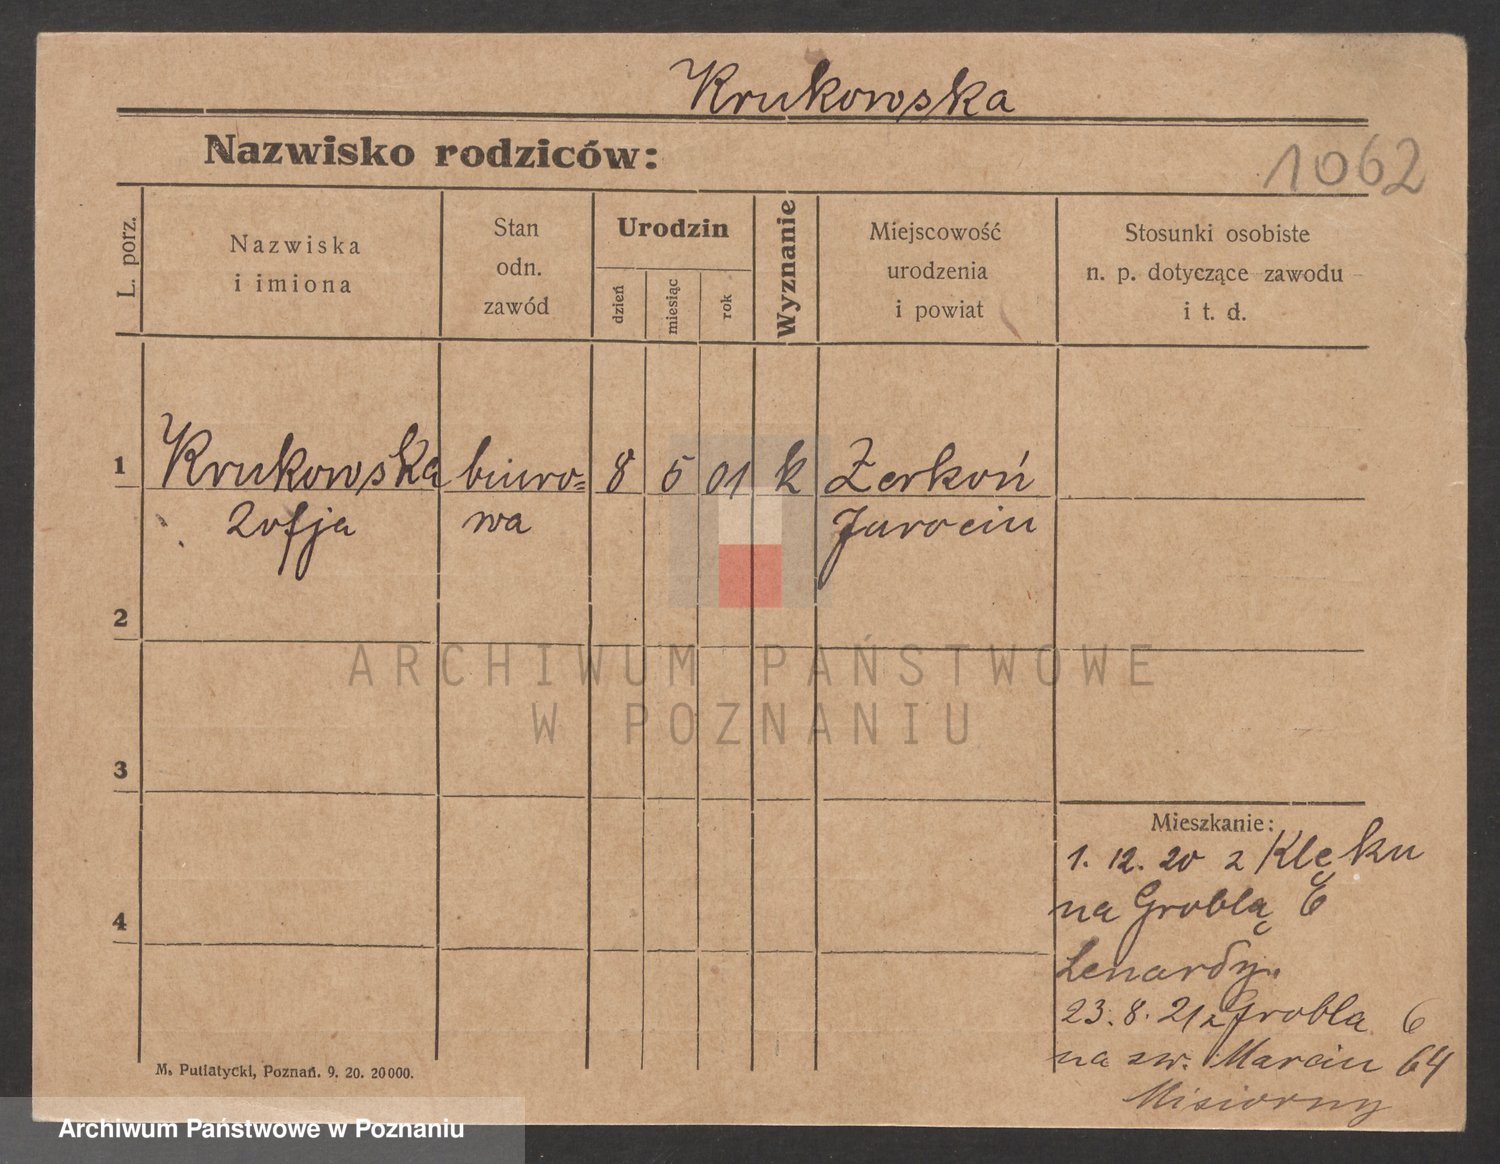 Krukowska
Nazwisko rodziców:
1062
L. porz.
Nazwiska
i imiona
Stan
odn.
zawód
Urodzin
dzień
miesiąc
rok
Wyznanie
Miejscowość
urodzenia
i powiat
Stosunki osobiste
n. p. dotyczące zawodu
i t. d.
1 Krukowska biuro= 8 5 01 k Żerkoń
Zofja wa Jarocin
2
ARCHIWUM PAŃSTWOWE
W POZNANIU
3
Mieszkanie:
1. 12. 20 z Klęku
na Groblą 6
4
Lenardy.
23. 8. 21 z Grobla 6
na św. Marcin 64
Misiorny
M. Putiatycki, Poznań. 9. 20. 20000.
Archiwum Państwowe w Poznaniu